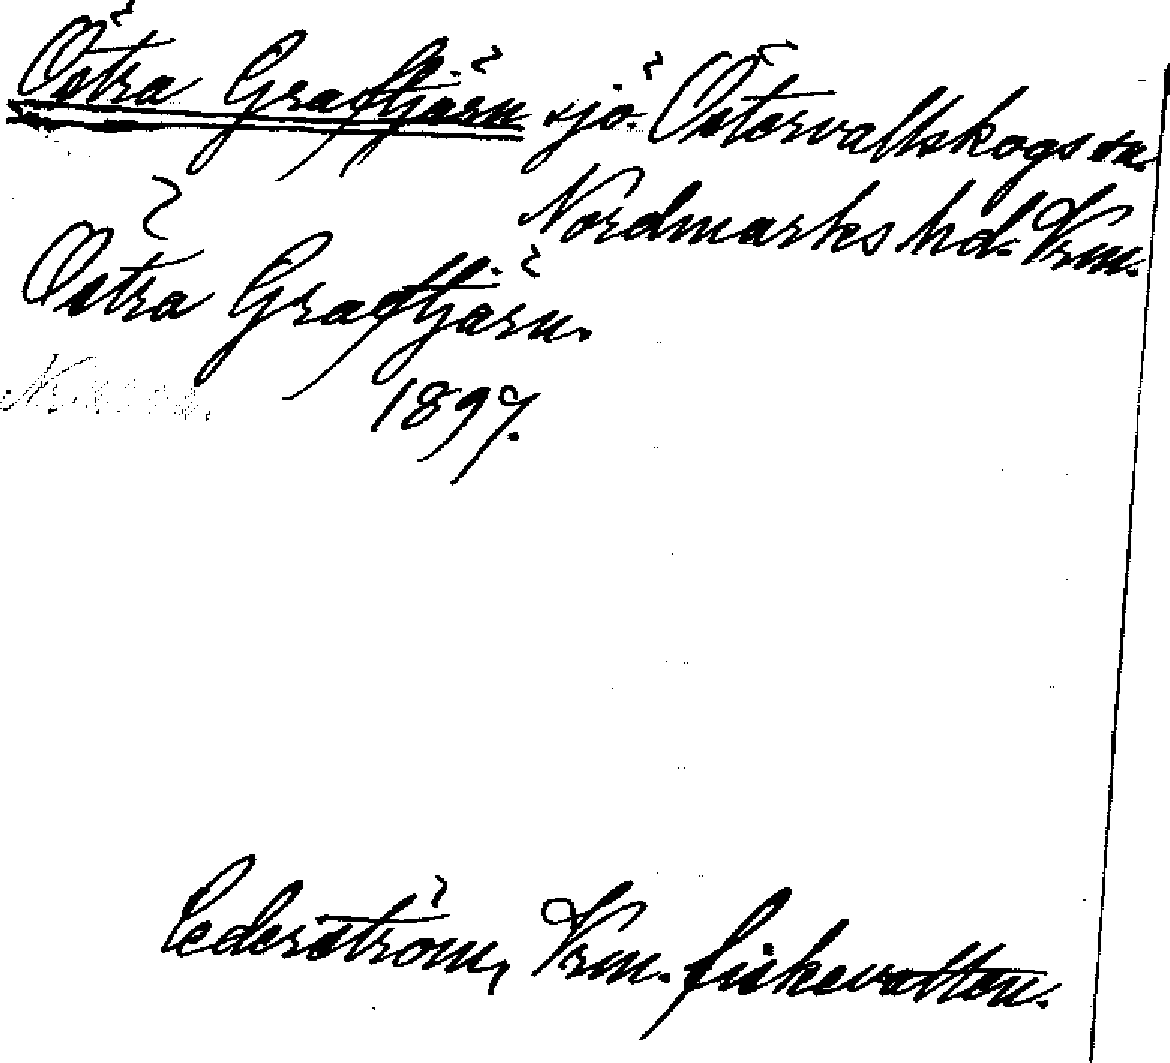 Östra Graftjärn sjö. Östervallskogs sn.
Nordmarks hd. Vrm.
Östra Graftjärn.
1897.
Cederström, Vrm. fiskevatten.